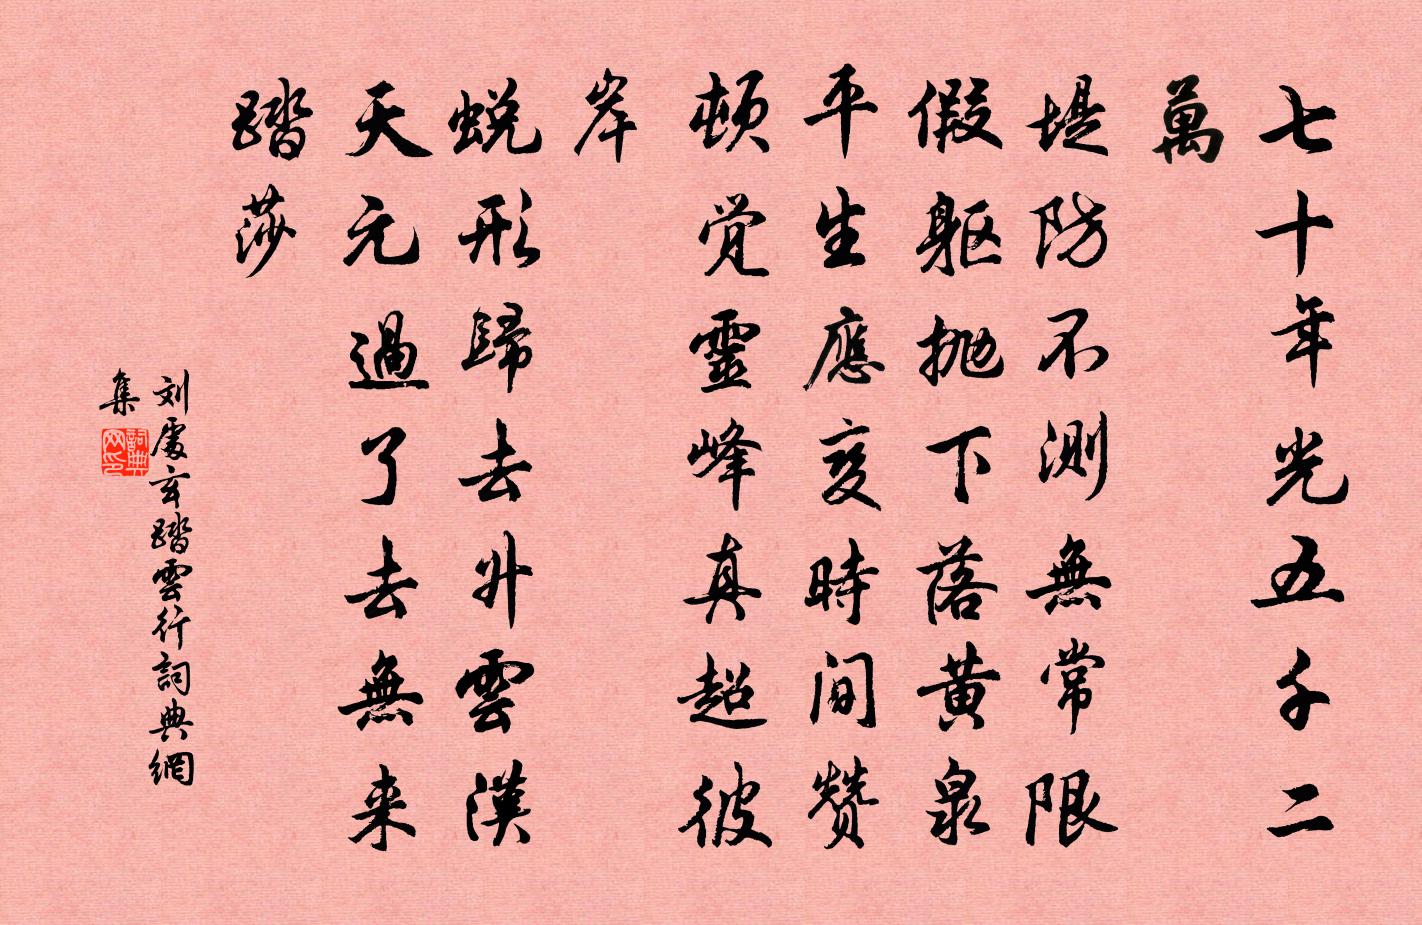 七十年光五千二
萬
堤防不測無常限
假軀抛下落黄泉
平生應变時间赞
頓觉靈峰真超彼
岸
蜕形歸去升雲漢
天元過了去無来
踏莎
刘處玄踏雲行詞典網
集
詞典
网印